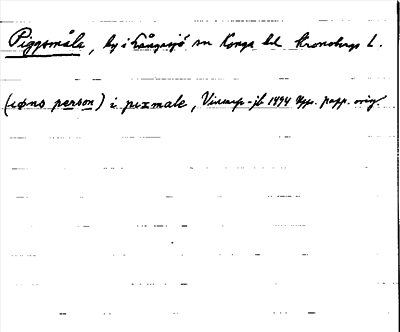 Piggsmåla, by i Långasjö sn Konga hd Kronobergs L.
(iøns person) i pixmale, Vinarp-jb 1494 Upps. papp. orig.